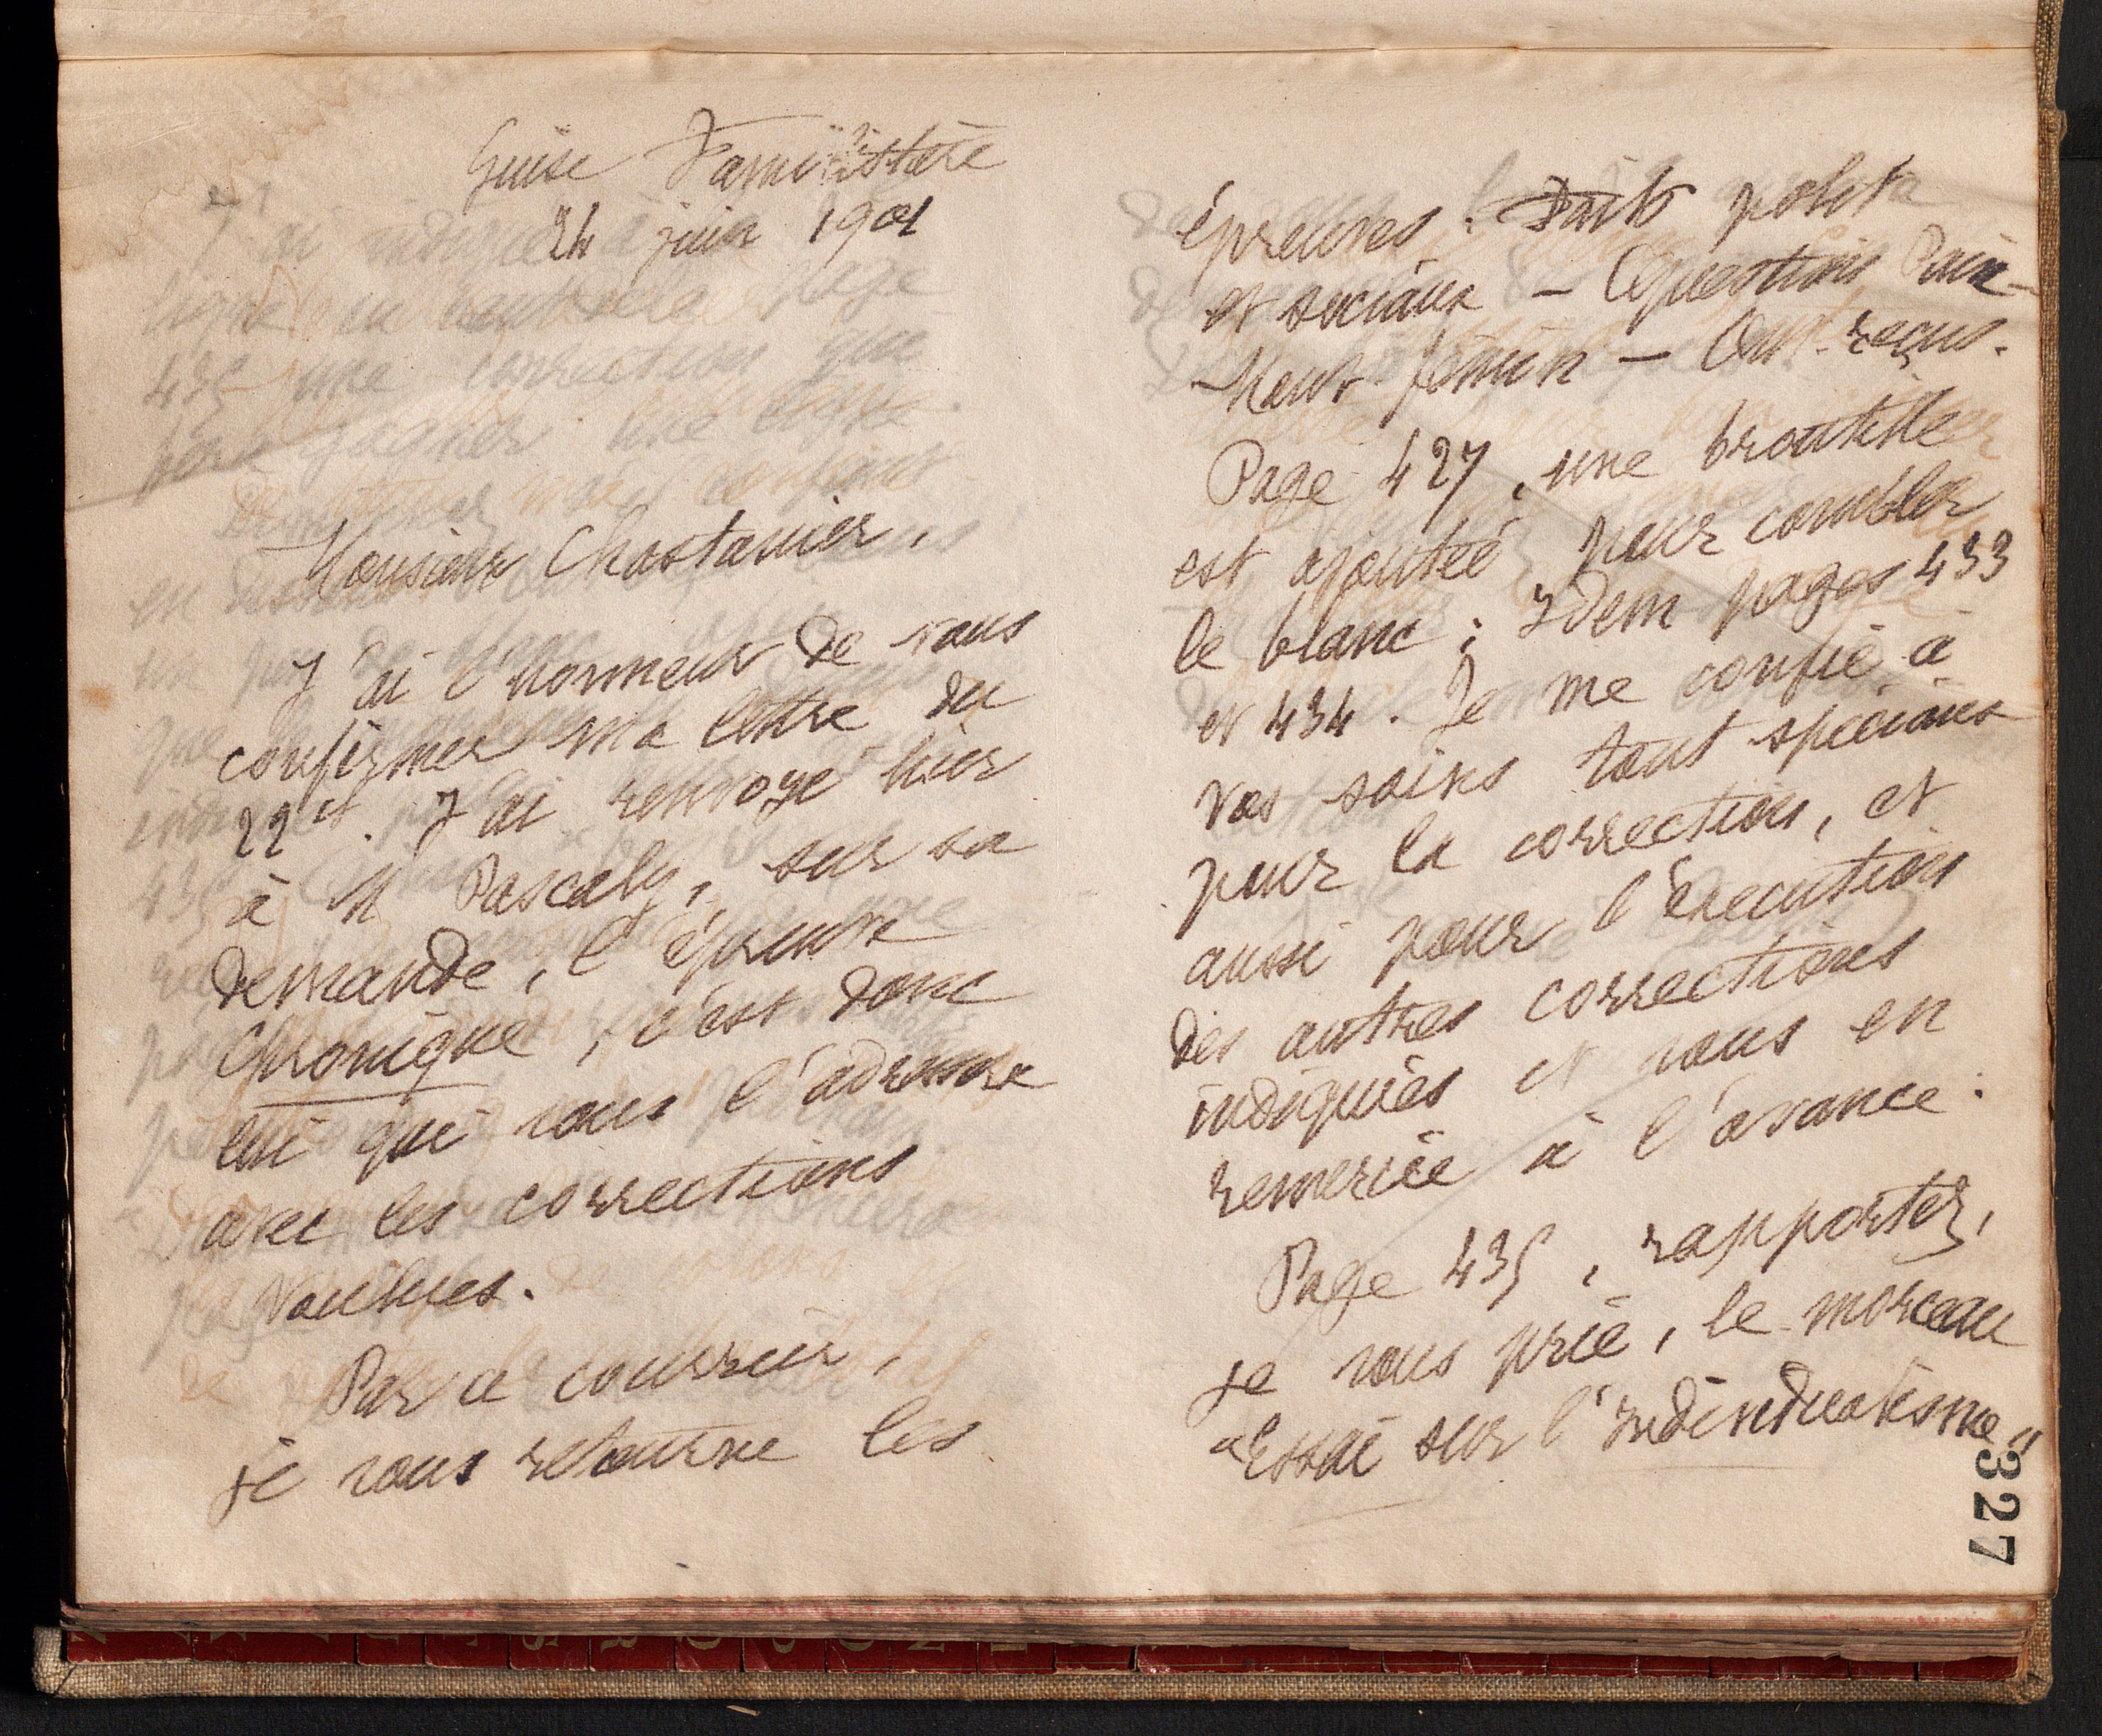 Guise Familistère
24 juin 1901
Monsieur Chastanier,
J'ai l'honneur de vous
confirmer ma lettre du
22 ct. J'ai renvoyé hier
à M Pascaly, sur sa
demande, l'épreuve
Chronique, c'est donc
lui qui vous l'adressera
avec les corrections
voulues.
Par ce courrier,
je vous retourne les
épreuves. Faits polit
et sociaux – Question Paix –
Mouvt féminin – Ouv. reçus.
Page 427, une broutille
est ajoutée pour combler
le blanc ; Idem pages 433
et 434. Je me confie à
vos soins tout spéciaux
pour la correction, et
aussi pour l'exécution
des autres corrections
indiquées et vous en
remercie à l'avance.
Page 435, rapportez,
je vous prie, le morceau
"Essai sur l'Individualisme"
327